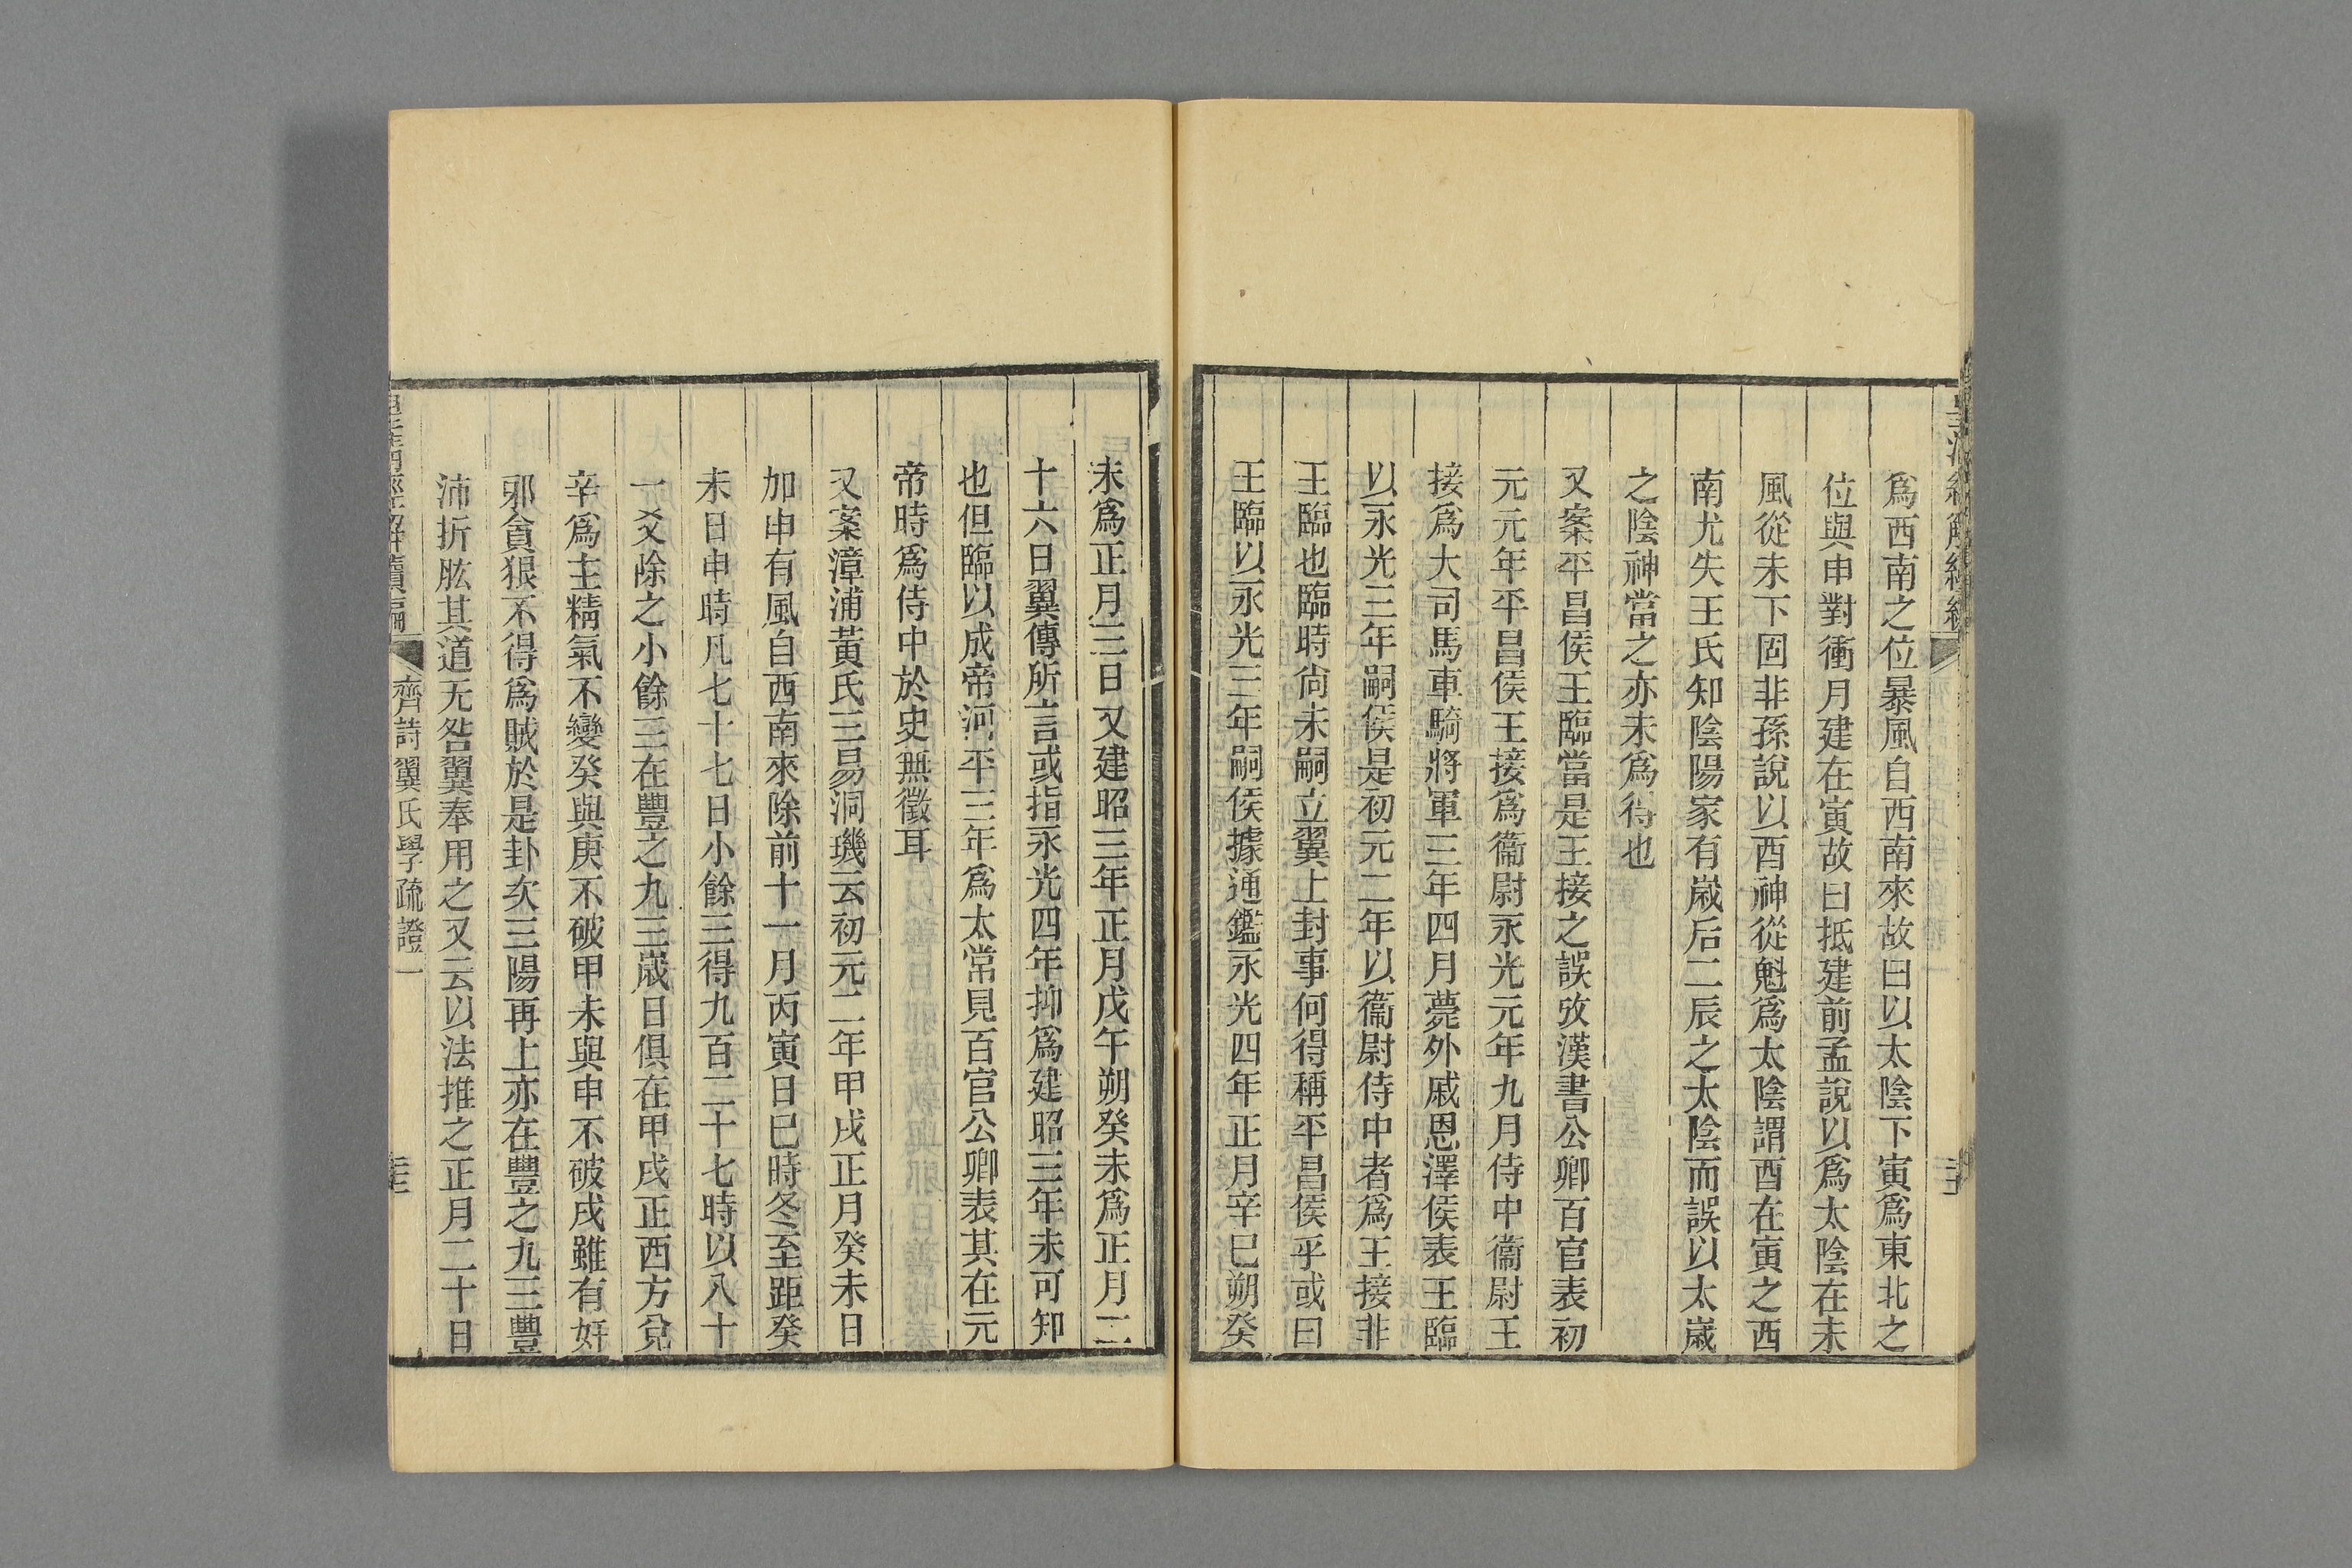 爲西南之位暴風自西南來故曰以太陰下寅爲東北之
位與申對衝月建在寅故曰抵建前孟說以爲太陰在未
風從未下固非孫說以酉神從魁爲太陰謂酉在寅之西
南尤失王氏知陰陽家有歲后二辰之太陰而誤以太歲
之陰神當之亦未爲得也
又案平昌侯王臨當是王接之誤攷漢書公卿百官表初
元元年平昌侯王接爲衞尉永光元年九月侍中衞尉王
接爲大司馬車騎將軍三年四月薨外戚恩澤侯表王臨
以永光三年嗣侯是初元二年以衞尉侍中者爲王接非
王臨也臨時尙未嗣立翼上封事何得稱平昌侯乎或曰
王臨以永光三年嗣侯據通鑑永光四年正月辛巳朔癸
未爲正月三日又建昭三年正月戊午朔癸未爲正月二
十六日翼傳所言或指永光四年抑爲建昭三年未可知
也但臨以成帝河平三年爲太常見百官公卿表其在元
帝時爲侍中於史無徵耳
又案漳浦黃氏三易洞璣云初元二年甲戌正月癸未日
加申有風自西南來除前十一月丙寅日巳時冬至距癸
未日申時凡七十七日小餘三得九百二十七時以八十
一爻除之小餘三在豐之九三歲日俱在甲戌正西方兌
辛爲主精氣不變癸與庚不破甲未與申不破戌雖有奸
邪貪狠不得爲賊於是卦次三陽再上亦在豐之九三豐
沛折肱其道无咎翼奉用之又云以法推之正月二十日
齊詩翼氏學疏證一